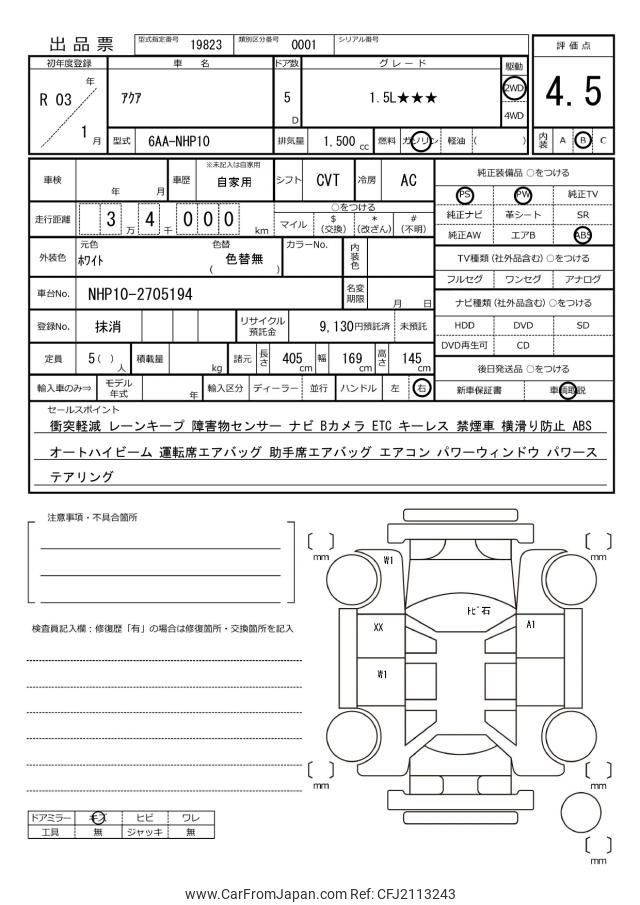 出品票 型式指定番号 19823 類別区分番号 0001 シリアル番号
評価点
4.5
内装 A B C
初年度登録 車名 ドア数 グレード 駆動
R 03 年 1 月
アクア
5 D
1.5L★★★
2WD
4WD
型式 6AA-NHP10 排気量 1,500 cc 燃料 ガソリン 軽油 ( )
車検 年 月 車歴 ※未記入は自家用 自家用 シフト CVT 冷房 AC
走行距離 3 万 4 千 0 0 0 km
○をつける
マイル $ (交換) * (改ざん) # (不明)
外装色 元色 ホワイト 色替 ( 色替無 ) カラーNo. 内装色
車台No. NHP10-2705194 名変期限 月 日
登録No. 抹消 リサイクル預託金 9,130円預託済 未預託
定員 5 ( ) 人 積載量 kg 諸元 長さ 405 cm 幅 169 cm 高さ 145 cm
輸入車のみ⇒ モデル年式 年 輸入区分 ディーラー 並行 ハンドル 左 右
純正装備品 ○をつける
PS PW 純正TV
純正ナビ 革シート SR
純正AW エアB ABS
TV種類 (社外品含む) ○をつける
フルセグ ワンセグ アナログ
ナビ種類 (社外品含む) ○をつける
HDD DVD SD
DVD再生可 CD
後日発送品 ○をつける
新車保証書 車輌取説
セールスポイント
衝突軽減 レーンキープ 障害物センサー ナビ Bカメラ ETC キーレス 禁煙車 横滑り防止 ABS
オートハイビーム 運転席エアバッグ 助手席エアバッグ エアコン パワーウィンドウ パワース
テアリング
注意事項・不具合箇所
検査員記入欄：修復歴「有」の場合は修復箇所・交換箇所を記入
mm
mm
W1
トビ石
XX
A1
W1
mm
mm
mm
ドアミラー キズ ヒビ ワレ
工具 無 ジャッキ 無
www.CarFromJapan.com Ref: CFJ2113243